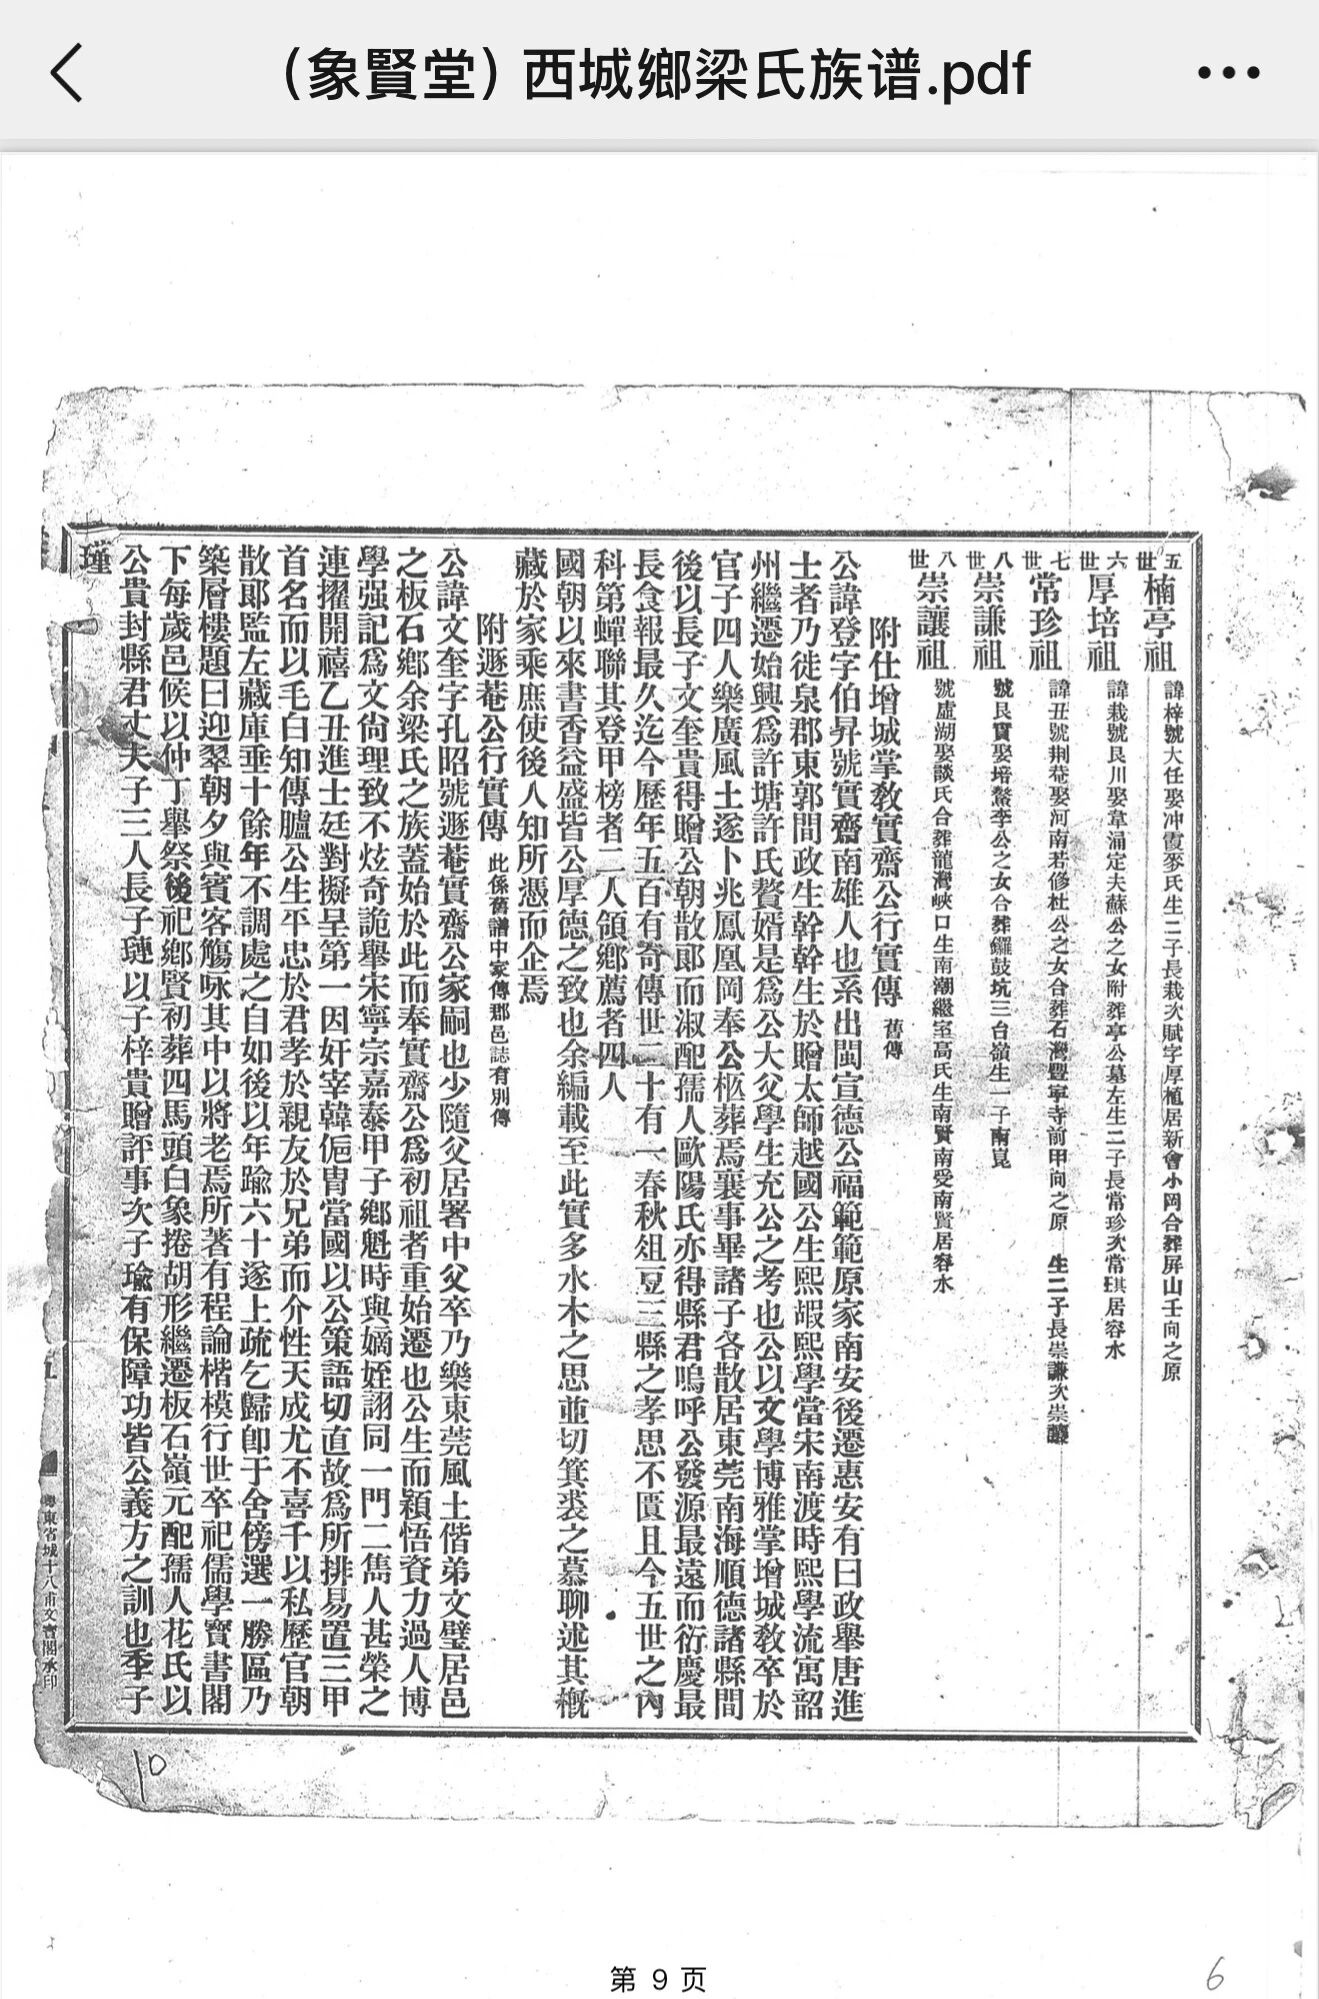 （象賢堂）西城鄉梁氏族谱.pdf
五世楠亭祖 諱梓號大任娶冲霞麥氏生二子長栽次賦字厚植居新會小岡合葬屏山壬向之原
六世厚培祖 諱栽號艮川娶韋涌定夫蘇公之女附葬亭公墓左生二子長常珍次常琪居容水
七世常珍祖 諱丑號荆菴娶河南若修杜公之女合葬石灣豐寧寺前甲向之原 生二子長崇謙次崇讓
八世崇謙祖 號艮賓娶培鰲李公之女合葬鑼鼓坑三台嶺生一子南崑
八世崇讓祖 號虛湖娶談氏合葬龍灣峽口生南潮繼室高氏生南賢南受南賢居容水
附仕增城掌敎實齋公行實傳 舊傳
公諱登字伯昇號實齋南雄人也系出閩宣德公福範範原家南安後遷惠安有曰政舉唐進
士者乃徙泉郡東郭間政生幹幹生於贈太師越國公生熙嘏熙學當宋南渡時熙學流寓韶
州繼遷始興爲許塘許氏贅婿是爲公大父學生充公之考也公以文學博雅掌增城敎卒於
官子四人樂廣風土遂卜兆鳳凰岡奉公柩葬焉襄事畢諸子各散居東莞南海順德諸縣間
後以長子文奎貴得贈公朝散郎而淑配孺人歐陽氏亦得縣君嗚呼公發源最遠而衍慶最
長食報最久迄今歷年五百有奇傳世二十有一春秋俎豆三縣之孝思不匱且今五世之內
科第蟬聯其登甲榜者二人領鄉薦者四人
國朝以來書香益盛皆公厚德之致也余編載至此實多水木之思並切箕裘之慕聊述其槪
藏於家乘庶使後人知所憑而企焉
附遯菴公行實傳 此係舊譜中家傳郡邑誌有別傳
公諱文奎字孔昭號遯菴實齋公家嗣也少隨父居署中父卒乃樂東莞風土偕弟文璧居邑
之板石鄉余梁氏之族蓋始於此而奉實齋公爲初祖者重始遷也公生而穎悟資力過人博
學强記爲文尙理致不炫奇詭舉宋寧宗嘉泰甲子鄉魁時與嫡姪詡同一門二雋人甚榮之
連擢開禧乙丑進士廷對擬呈第一因奸宰韓侂胄當國以公策語切直故爲所排易置三甲
首名而以毛白知傳臚公生平忠於君孝於親友於兄弟而介性天成尤不喜千以私歷官朝
散郎監左藏庫垂十餘年不調處之自如後以年踰六十遂上疏乞歸卽于舍傍選一勝區乃
築層樓題曰迎翠朝夕與賓客觴咏其中以將老焉所著有程論楷模行世卒祀儒學寶書閣
下每歲邑候以仲丁舉祭後祀鄉賢初葬四馬頭白象捲胡形繼遷板石嶺元配孺人花氏以
公貴封縣君丈夫子三人長子璉以子梓貴贈評事次子瑜有保障功皆公義方之訓也季子
瑾
粤東省城十八甫文寶閣承印
10
第 9 页
6